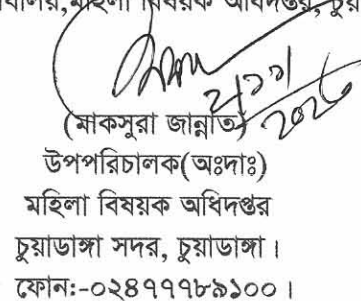 মহিলা বিষয়ক অধিদপ্তর,
(মাকসুরা জান্নাত)
উপপরিচালক(অঃদাঃ)
মহিলা বিষয়ক অধিদপ্তর
চুয়াডাঙ্গা সদর, চুয়াডাঙ্গা।
ফোন:-০২৪৭৭৭৮৯১০০।